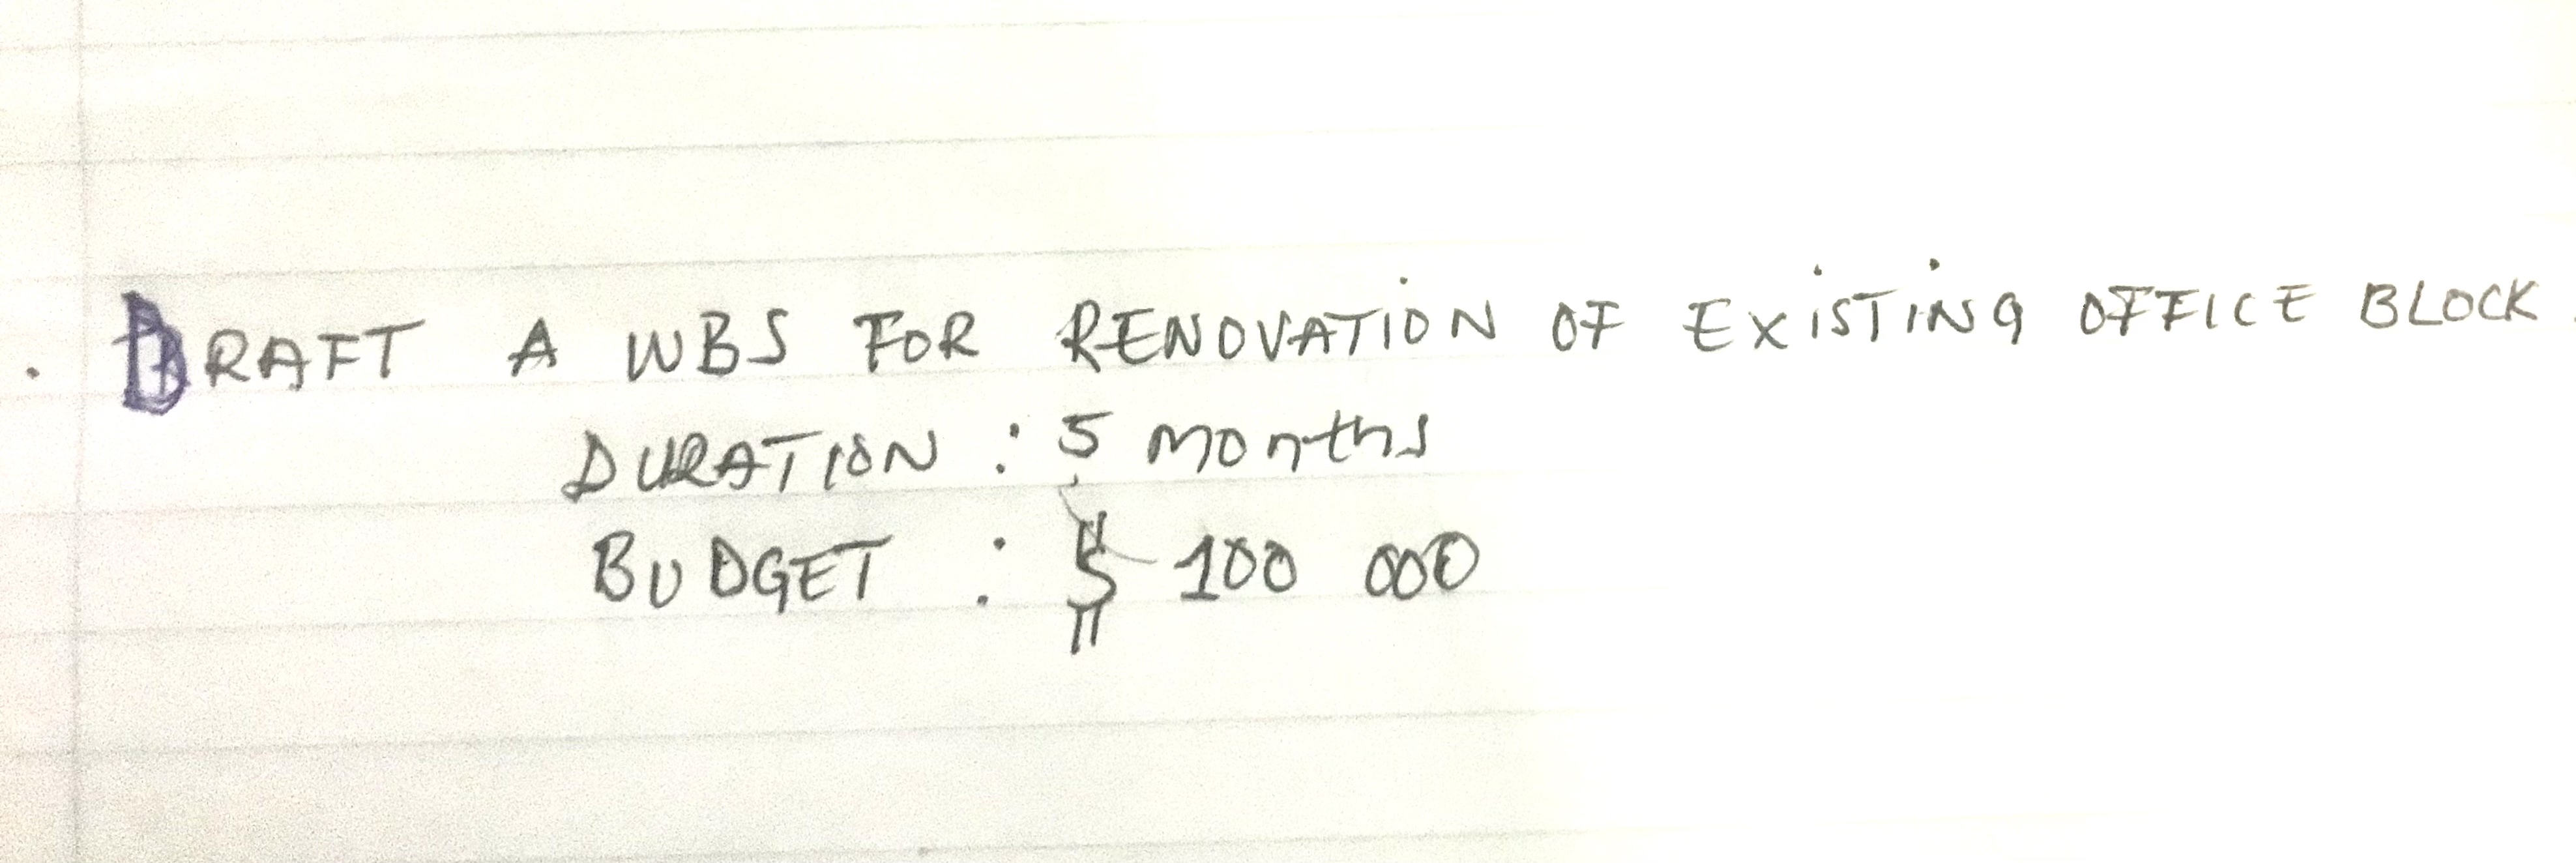 . DRAFT A WBS FOR RENOVATION OF EXISTING OFFICE BLOCK.
DURATION : 5 months
BUDGET : $ 100 000